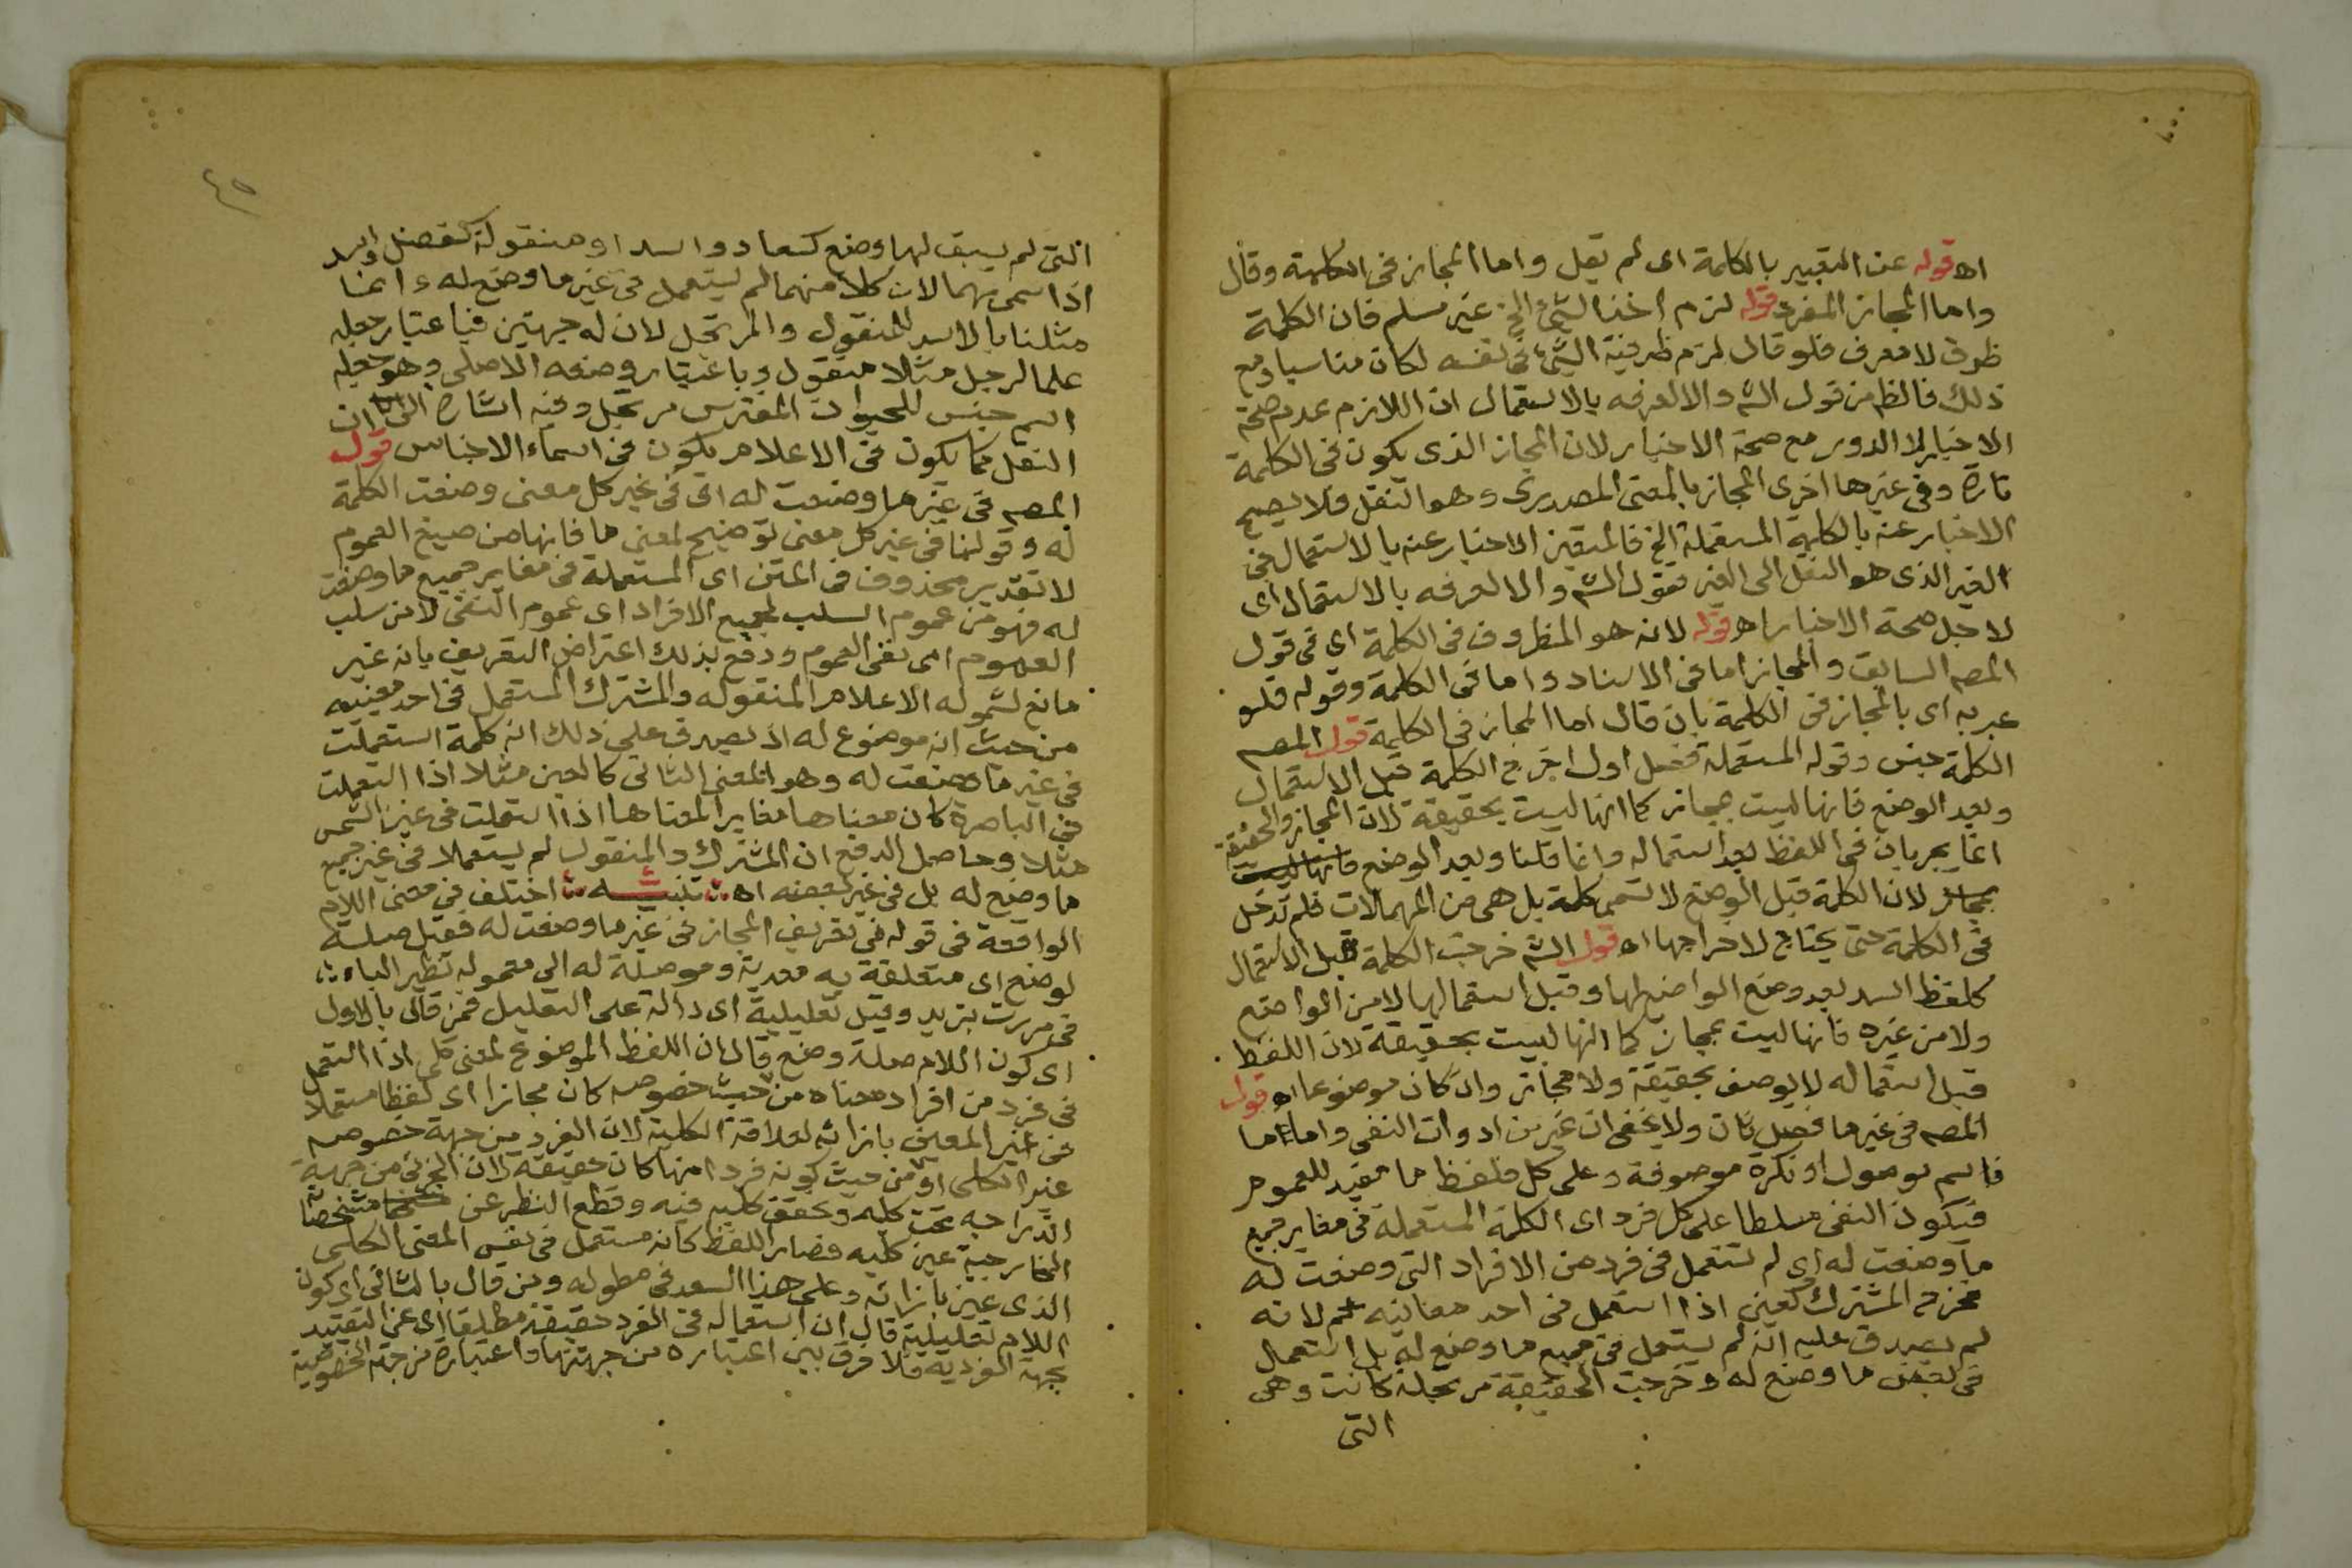 اه قوله عن التعبير بالكلمة اى لم يقل واما المجاز فى الكلمة وقال
واما المجاز المفرد قوله لزم اخذ الشئ الخ غير مسلم فان الكلمة
ظرف لا معرف فلو قال لزم ظرفية الشئ فى نفسه لكان مناسبا ومع
ذلك فالظ من قول الش والا لعرفه بالاستعمال ان اللازم عدم صحة
الاخبار لا الدور مع صحة الاخبار لان المجاز الذى يكون فى الكلمة
تارة وفى غيرها اخرى المجاز بالمعنى المصدرى وهو النقل فلا يصح
الاخبار عنه بالكلمة المستعملة الخ فالمتعين الاخبار عنه بالاستعمال فى
الغير الذى هو النقل الى الغير فقول الش والا لعرفه بالاستعمال اى
لاجل صحة الاخبار اه قوله لانه هو المظروف فى الكلمة اى فى قول
المصـ السابق والمجاز اما فى الاسناد واما فى الكلمة وقوله فلو
عبر به اى بالمجاز فى الكلمة بان قال اما المجاز فى الكلمة قول المصـ
الكلمة جنس وقوله المستعملة فصل اول اخرج الكلمة قبل الاستعمال
وبعد الوضع فانها ليست بمجاز كما انها ليست بحقيقة لان المجاز والحقيقة
انما يجريان فى اللفظ بعد استعماله وانما قلنا وبعد الوضع فانها ليست
بمجاز لان الكلمة قبل الوضع لا تسمى كلمة بل هى من المهمالات فلم تدخل
فى الكلمة حتى يحتاج لاخراجها اه قول الش خرجت الكلمة قبل الاستعمال
كلفظ اسد بعد وضع الواضع لها وقبل استعمالها لا من الواضع
ولا من غيره فانها ليست بمجاز كما انها ليست بحقيقة لان اللفظ
قبل استعماله لا يوصف بحقيقة ولا مجاز وان كان موضوعا اه قول
المصـ فى غير ما فصل ثان ولا يخفى ان غير من ادوات النفى واما ما
فاسم موصول او نكرة موصوفة وعلى كل فلفظ ما مفيد للعموم
فيكون النفى مسلطا على كل فرد اى الكلمة المستعملة فى مغاير جميع
ما وضعت له اى لم تستعمل فى فرد من الافراد التى وضعت له
فخرج المشترك كعين اذا استعمل فى احد معانيه لانه
لم يصدق عليه انه لم يستعمل فى جميع ما وضع له بل استعمال
فى بعض ما وضع له وخرجت الحقيقة مرتجلة كانت وهى
التى
٤٥
التى لم يسبق لها وضع كسعاد واسد او منقولة كفضل واسد
اذا سمى بهما لان كلا منهما لم يستعمل فى غير ما وضع له وانما
مثلنا بالاسد للمنقول والمرتجل لان له جهتين فباعتبار جعله
علما لرجل مثلا منقول وباعتبار وضعه الاصلى وهو جعله
اسم جنس للحيوان المفترس مرتجل وفيه اشارة الى ان
النقل كما يكون فى الاعلام يكون فى اسماء الاجناس قول
المصـ فى غير ما وضعت له اى فى غير كل معنى وضعت الكلمة
له وقولنا فى غير كل معنى توضيح لمعنى ما فانها من صيغ العموم
لا تقدير محذوف فى المتن اى المستعملة فى مغاير جميع ما وضعت
له فهو من عموم السلب لجميع الافراد اى عموم النفى لا من سلب
العموم اى نفى العموم ودفع بذلك اعتراض التعريف بانه غير
مانع لشموله الاعلام المنقوله والمشترك المستعمل فى احد معنييه
من حيث انه موضوع له اذ يصدق على ذلك انه كلمة استعملت
فى غير ما وضعت له وهو المعنى الثانى كالعين مثلا اذا استعملت
فى الباصرة كان معناها مغايرا لمعناها اذا استعملت فى عين الشمس
مثلا وحاصل الدفع ان المشترك والمنقول لم يستعملا فى غير جميع
ما وضع له بل فى غير بعضه اه تنبيه اختلف فى معنى اللام
الواقعة فى قوله فى تعريف المجاز فى غير ما وضعت له فقيل صلة
لوضع اى متعلقة به معدية وموصلة له الى معموله نظير الباء
فى مررت بزيد وقيل تعليلية اى دالة على التعليل فمن قال بالاول
اى كون اللام صلة وضع قال ان اللفظ الموضوع لمعنى كلى اذا استعمل
فى فرد من افراد معناه من حيث خصوصه كان مجازا اى لفظا مستعملا
فى غير المعين بازائه لعلاقة الكلية لان الفرد من جهة خصوصه
غير الكلى او من حيث كونه فردا منها كان حقيقة لان الجزئى من جهة
اندراجه تحت كليه وتحقق كليه فيه وقطع النظر عن مشخصاته
الخارجية عين كليه فصار اللفظ كانه مستعمل فى نفس المعنى الكلى
الذى عين بازائه وعلى هذا السعد فى مطوله ومن قال بالثانى اى كون
اللام تعليلية قال ان استعماله فى الفرد حقيقة مطلقا اى عن التقييد
بجهة الفردية فلا فرق بين اعتباره من جهتها واعتباره من جهة الخصوصية